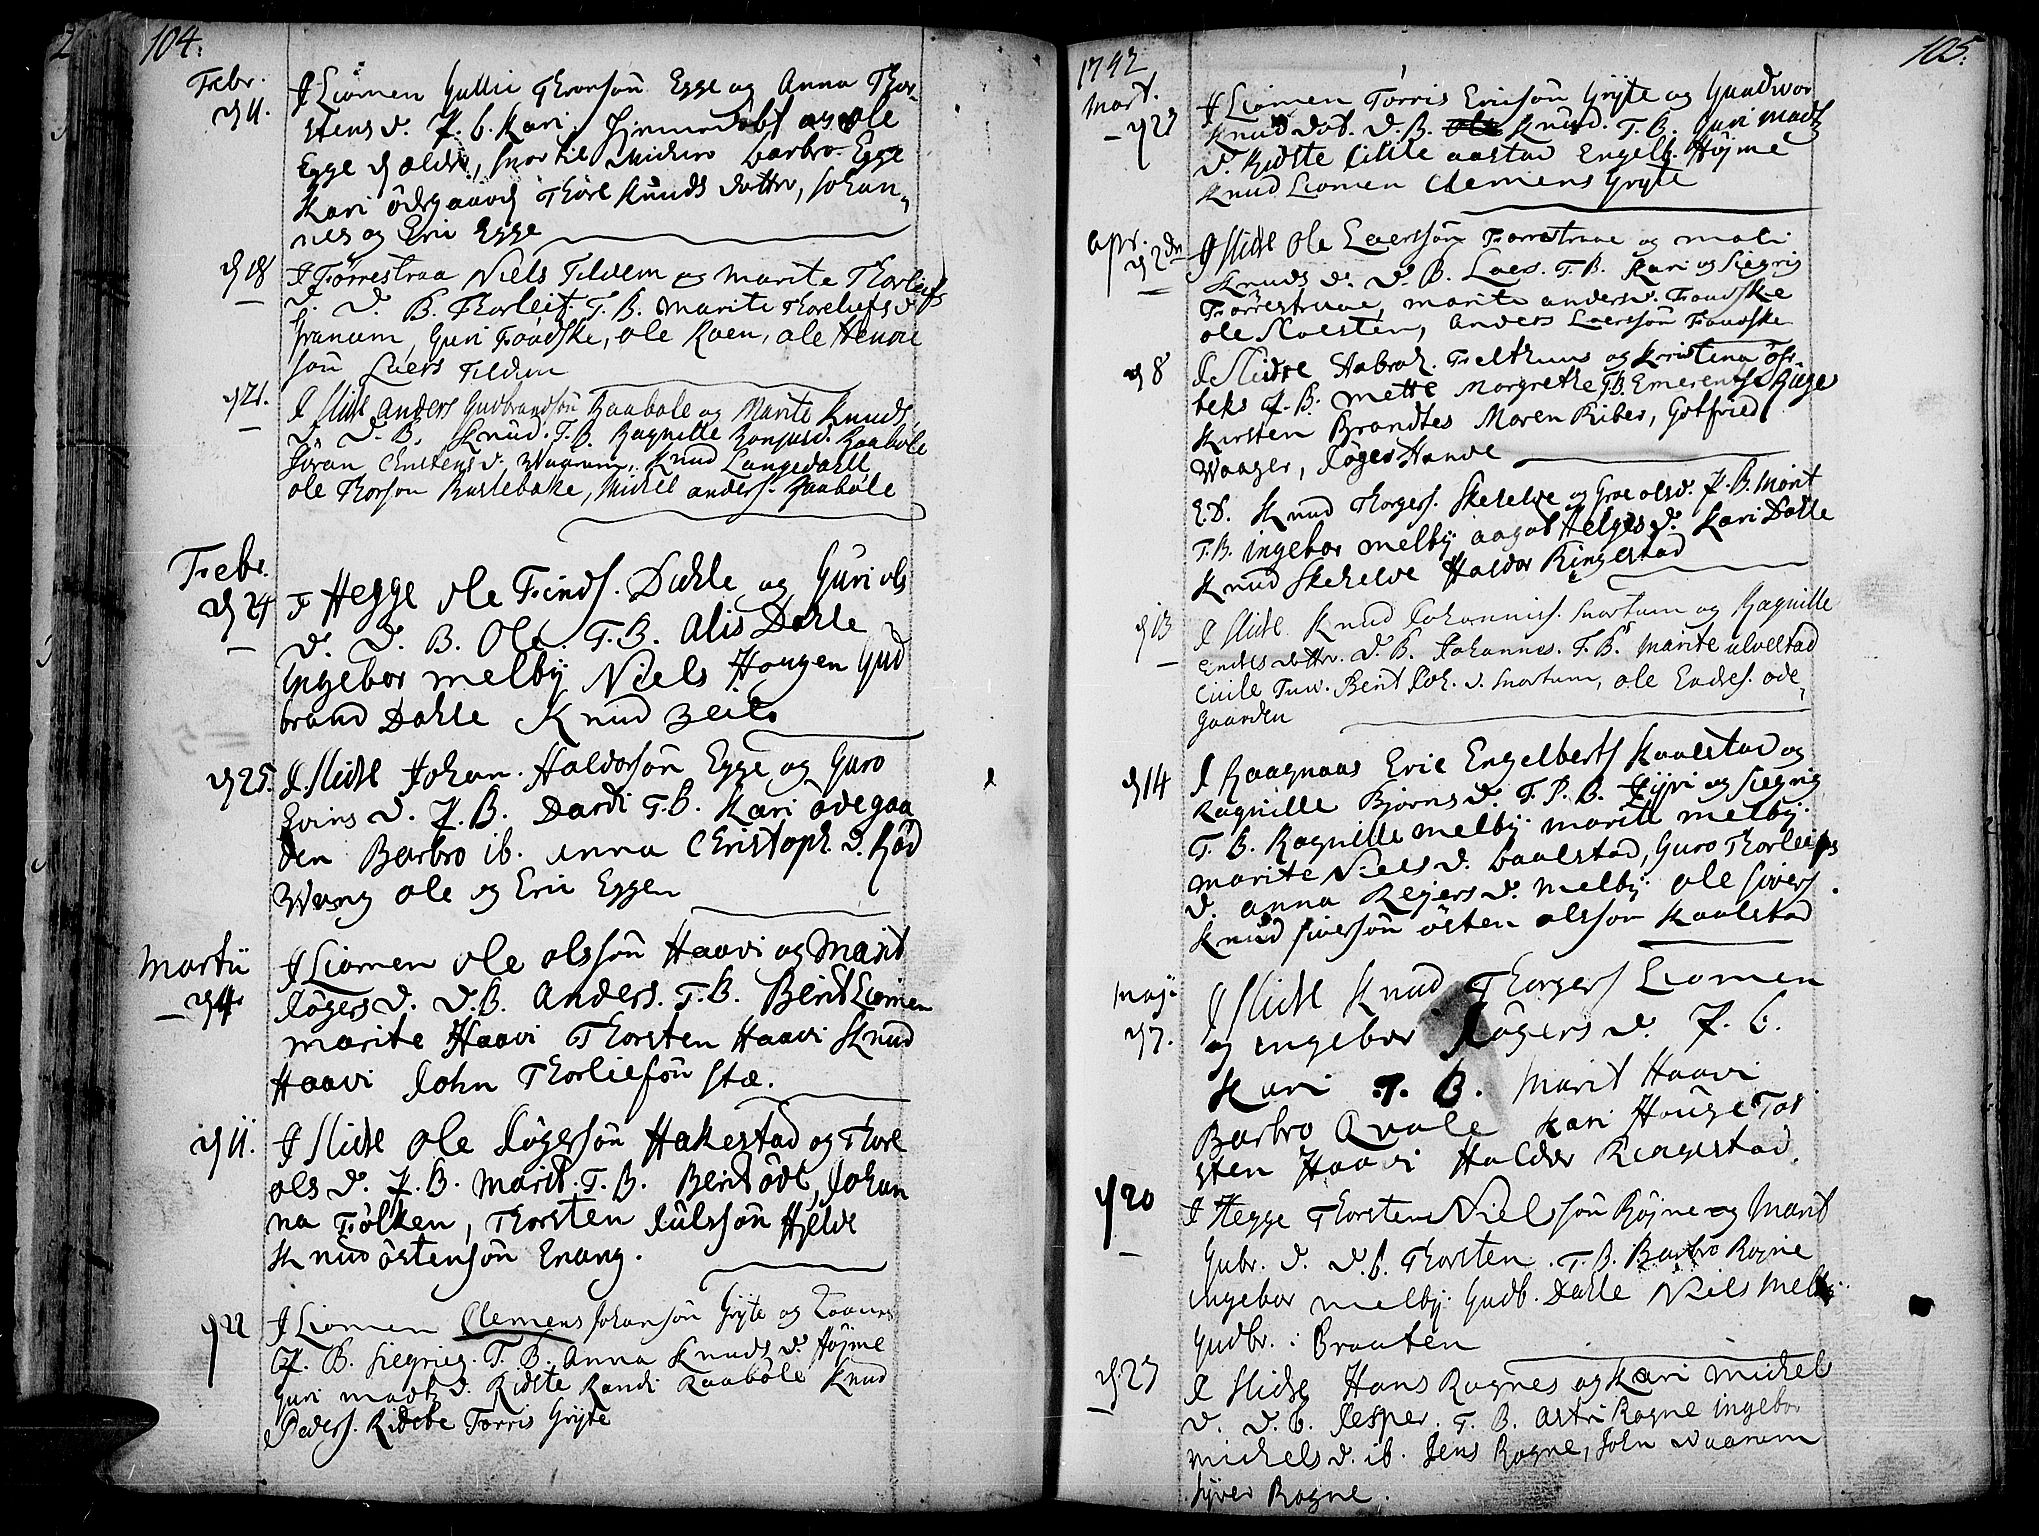 104.
Febr.
d 11. I Liomen Gullie Thronsøn Egge og Anna Thor
stens d. P. B. Kari. hjemmedøbt og ole
Egge d ældre, mor til Barbro Egge
Kari ödegaard Thore Knuds datter, Johan
nes og Eric Egge
d 18 I Førrestraa Niels Tildem og Marite Thorleifs
d. D. B. Thorleif. T. B. Marite Thorleifs d
Guri Føudske, ole Roen, ole
søn Laers Tildem
d 21. I Slidre Anders Gudbrandsøn Raabøle og Marite Knuds
d. D. B. Knud. T. B. Ragnille Raabøle
Jöran d. Waarum, Knud Langedahll
ole Thorson Kurlebake, Mickel anders. Raabøle
Febr.
d 24 I Hegge Ole Finds. Dahle og Guri ols
d. D. B. Ole. T. B. Alis Dahle
Ingebor melby Niels Haugen Gud
brand Dahle Knud
d 25. I Slidre Johan. Haldorsøn Egge og Guro
Evins d. P. B. Dardi T. B. Kari ödegaa
den Barbro ib. anna Christoph. d. Rød
Wang ole og Eric Eggen
Martii
d 4. I Liomen ole olssøn Haavi og Marit
Jøgers d. D. B. Anders. T. B. Berit Liomen
marite Haavi Thorsten Haavi Knud
Haavi John Thorliefsøn stæ.
d 11. I Slidre Ole Jøgersøn Hakestad og Thore
ols d. P. B. Marit. T. B. Berit ödt, Johan
na Følken, Thorsten Julssøn Hjelde
Knud östensøn Enang.
d 22 I Liomen Clemens Johansøn Gryte og
P. B. Siegrieg. T. B. Anna Knuds d. Højme
Guri madtz d. Ridste Randi Raabøle Knud
Peders. Ridste Torris Gryte
1742 105.
Mart.
d 23 I Liomen Torris Ericsøn Gryte og Gundwor
Knuds dot. D. B. Knud. T. B. Guri madtz
d. Ridste lille aastad Engelb. Højme
Knud Liomen Clemens Gryte
Apr.
d 2dn I Slidre Ole Laerssøn Førrestraae og mali
Knuds d. D. B. Laers. T. B. Kari og Siegrig
Førrestraae, marite anders d. Foudske
ole Anders Laerssøn Foudske
d 8 I Slidre Habrah. Felthuus og Kristina
beks P. B. Mette Margrethe T.B. Emerents Rüge
Kirsten Brandtes Maren Riber, Gotfried
Waager, Jøger Hande
E. D. Knud Thorgers. Skehelde og Groe ols d. P. B. Marit
T. B. ingebor melby aagot Helges d. Kari Dahle
Knud Skehelde Haldor Ringestad
d 13 I Slidre Knud Johannis. Snortum og Ragnille
Endres datter. D. B. Johannes. T. B. Marite ulvestad
Berit Joh. d. Snortum, ole Endres. öde
gaarden
d 14 I Raagnaas Eric Engelberts Kaalstad og
Ragnille Bjørns d. T. P. B. og Siegrig
T. B. Ragnille melby marite melby.
marite Niels d. Kaalstad, Guro Thorleifs
d. anna Rejers d. Melby ole Sivers.
Knud siversøn östen olsson Kaalstad
Maji
d 7. I Slidre Knud Thorgers Liomen
og ingebor Jøgers d. P. B.
Kari T. B. Marit Haavi
Barbro Qvale Kari Hauge Tor
sten Haavi Haldor Ringestad.
d 20 I Hegge Thorsten Nielssøn Røjne og Marit
Gubr. d. D. B. Thorsten. T. B. Barbro Rogne
ingebor melby Gudb. Dahle Niels Melby
Gudbr. i Braaten
d 27 I Slidre Hans Ragnes og Kari Mickel
d. D. B. Jesper. T. B. Astri Rogne ingebor
mickels d. ib. Jens Rogne, John Waarum
Syver Rogne.